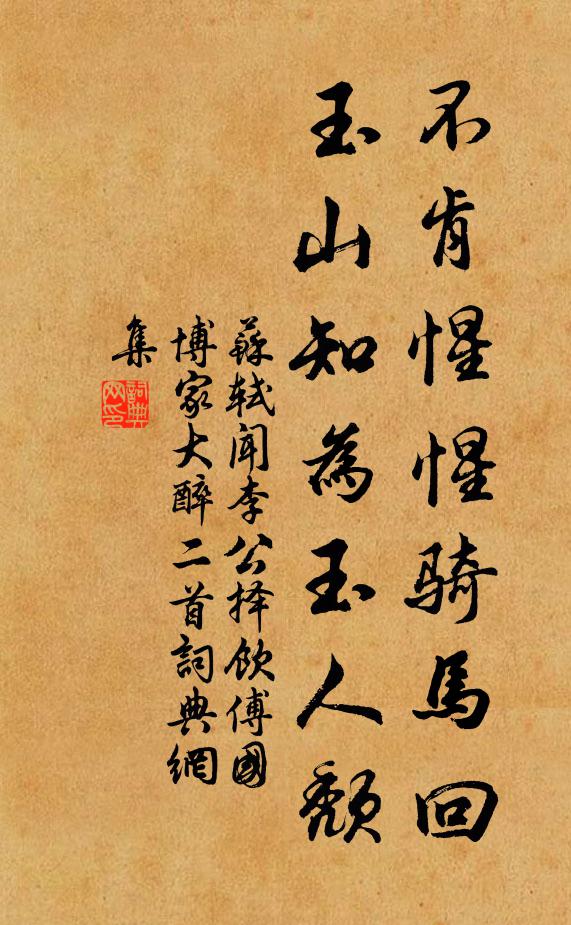 不肯惺惺騎馬回
玉山知為玉人頹
蘇軾聞李公择飲傅國
博家大醉二首詞典網
集
詞典
网印